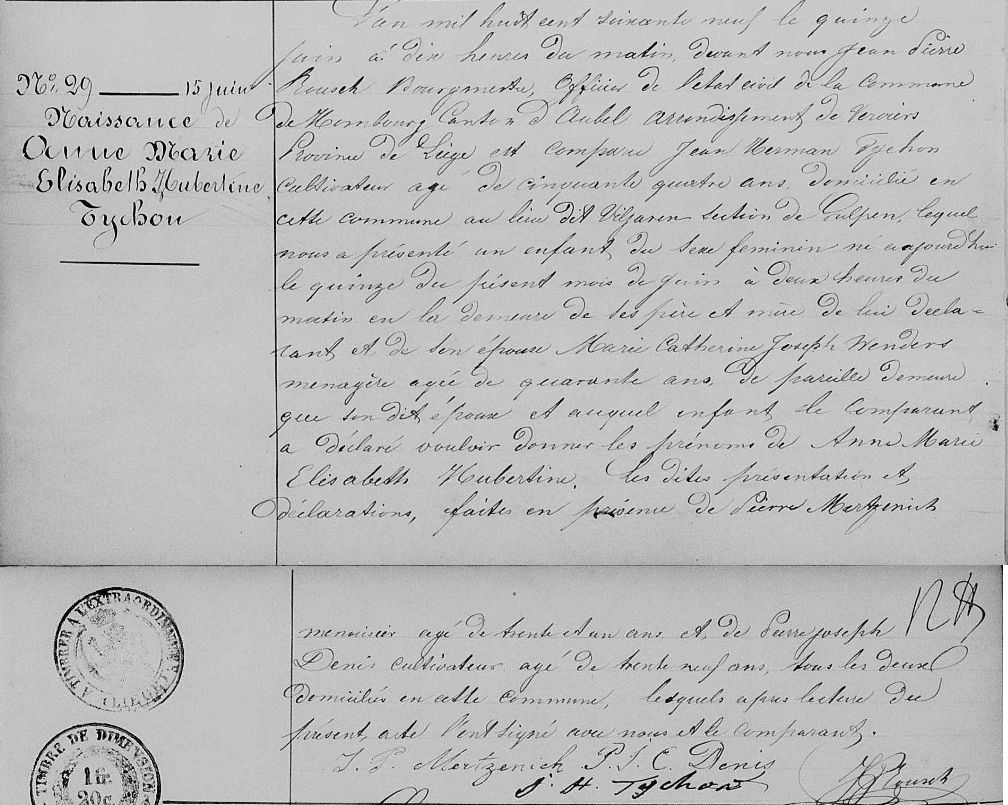 No. 29 ——— 15 juin
Naissance de
Anne Marie
Elisabeth Hubertine
Tychon
L'an mil huit cent soixante neuf le quinze
juin à dix heures du matin, devant nous Jean Pierre
Rousch Bourgmestre, Officier de l'état civil de la Commune
de Hombourg Canton d'Aubel arrondissement de Verviers
Province de Liège est comparu Jean Herman Tychon
cultivateur agé de cinquante quatre ans, domicilié en
cette commune au lieu dit section de Gulpen, lequel
nous a présenté un enfant du sexe feminin né aujourd'hui
le quinze du présent mois de juin à deux heures du
matin en la demeure de ses père et mère de lui decla-
rant et de son épouse Marie Catherine Joseph Wenders
menagère agée de quarante ans, de pareille demeure
que son dit époux et auquel enfant le comparant
a déclaré vouloir donner les prénoms de Anne Marie
Elisabeth Hubertine. Les dites présentation et
déclarations, faites en présence de Pierre Mertzenich
menuisier agé de trente et un ans et de Pierre Joseph
Denis cultivateur agé de trente neuf ans, tous les deux
domiciliés en cette commune, lesquels apres lecture du
présent acte l'ont signé avec nous et le comparant.
J. P. Mertzenich P. J. C. Denis
J. H. Tychon
Rousch
A TIMBRER A L'EXTRAORDINAIRE
TIMBRE DE DIMENSION
1fr.
20c.